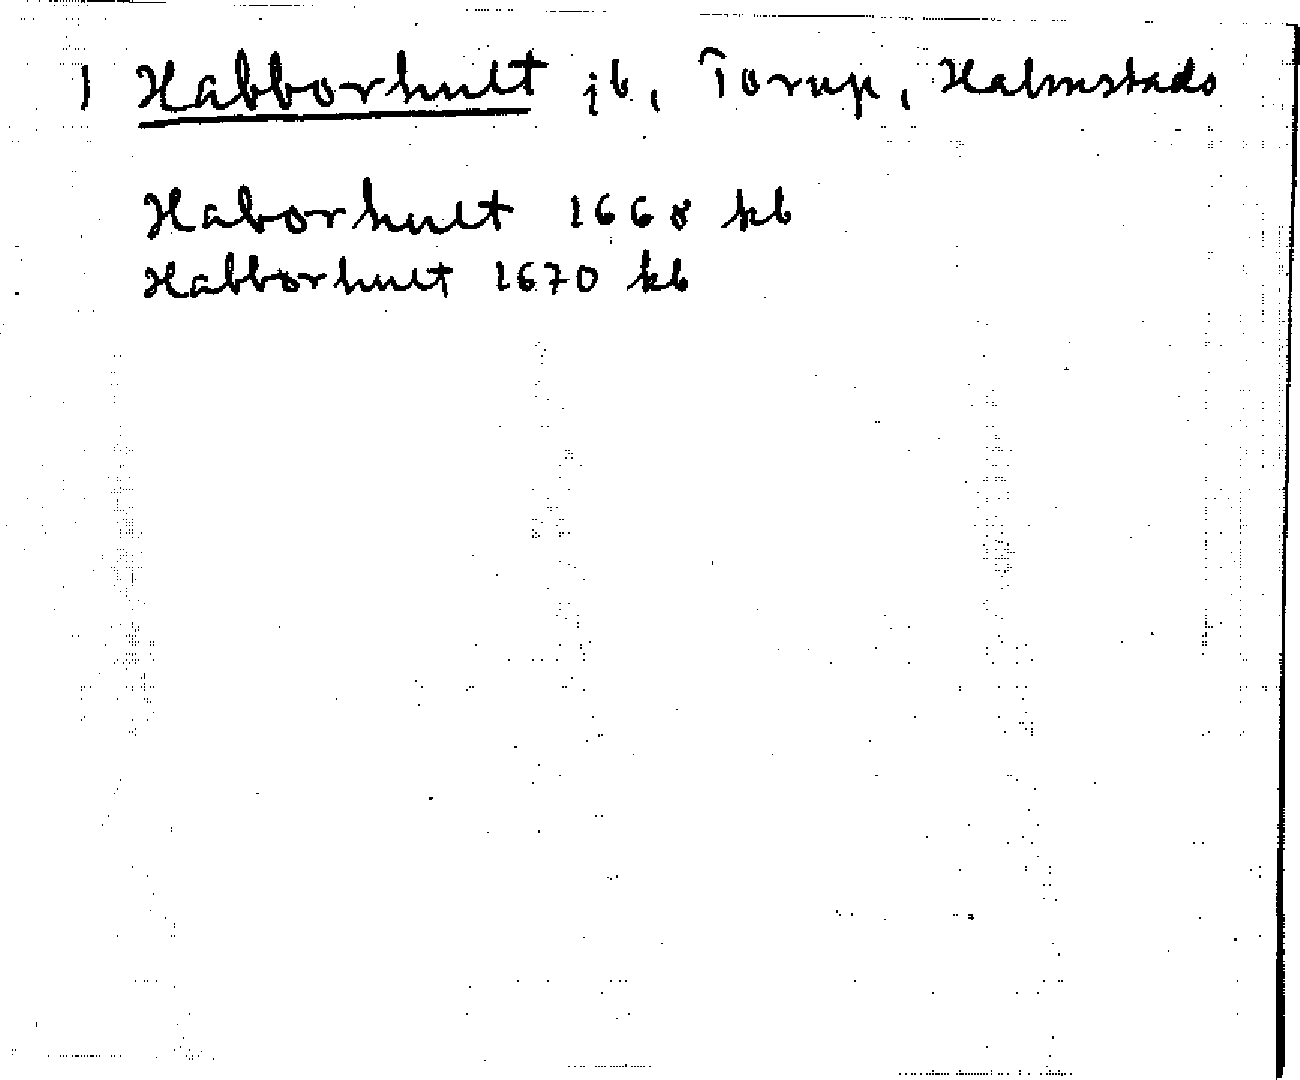 1 Habborhult jb, Torup, Halmstads
Haborhult 1668 kb
Habborhult 1670 kb